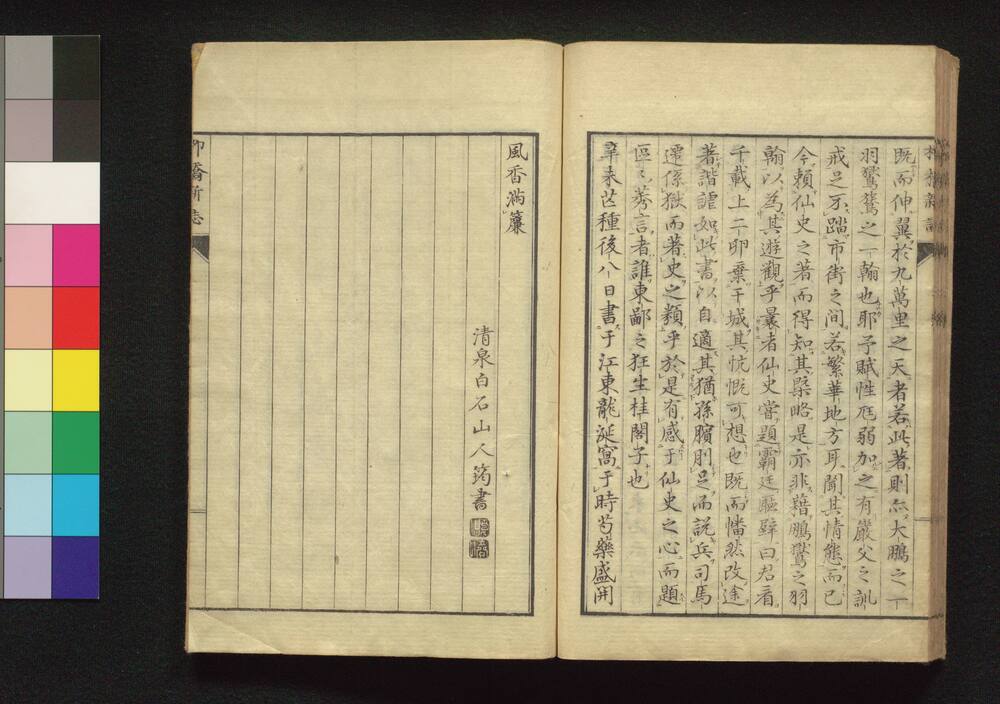 既而伸翼於九萬里之天者若此著則亦大鵬之一
羽鷲鷲之一翰也耶予賦性尫弱加之有嚴父之訓
戒足不踏市街之間若繁華地方耳聞其情態而已
今賴仙史之著而得知其槩略是亦非藉鵬鷲之羽
翰以為其遊觀乎曩者仙史嘗題霸廷壁曰君看
千載上二卵棄干城其忼慨可想也既而幡然改途
著諧謔如此書以自適其猶孫臏刖足而說兵司馬
遷係獄而著史之類乎於是有感于仙史之心而題
區々莠言者誰東鄙之狂生桂閣子也
辛未芒種後八日書于江東龍涎窩于時芍藥盛開
風香滿簾
清泉白石山人筠書
柳橋新志